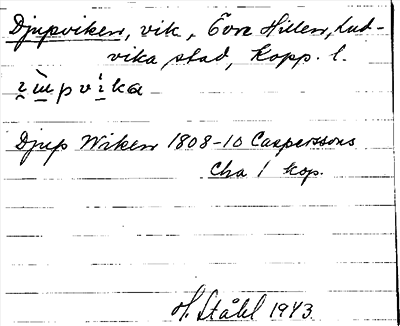 Djupviken, vik, Övre Hillen, Lud-
vika stad, Kopp. l.
Djup Wiken 1808-10 Casperssons
Cha 1 kop.
H. Ståhl 1943